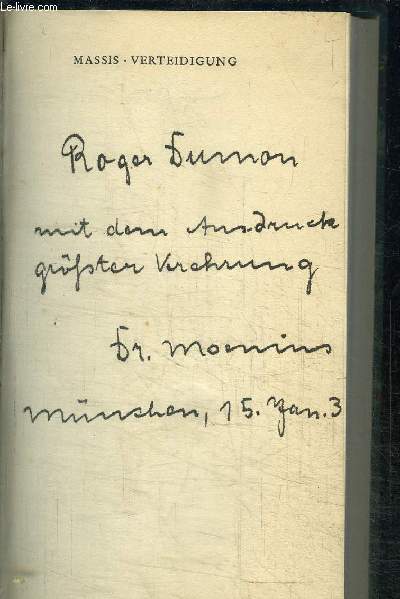 Le-livre.com
MASSIS · VERTEIDIGUNG
Roger Dumon
mit dem Ausdruck
größter Verehrung
Dr. Moenius
München, 15. Jan. 3